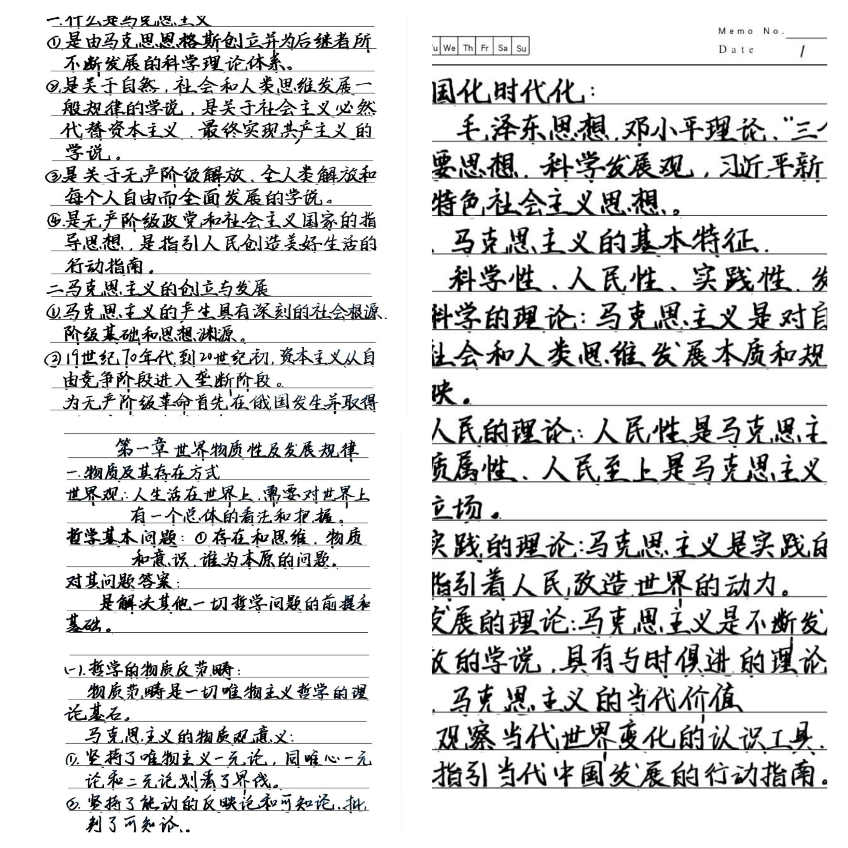 一.什么是马克思主义
①是由马克思恩格斯创立并为后继者所
不断发展的科学理论体系。
②是关于自然,社会和人类思维发展一
般规律的学说,是关于社会主义必然
代替资本主义、最终实现共产主义的
学说。
③是关于无产阶级解放、全人类解放和
每个人自由而全面发展的学说。
④是无产阶级政党和社会主义国家的指
导思想,是指引人民创造美好生活的
行动指南。
二.马克思主义的创立与发展
①马克思主义的产生具有深刻的社会根源、
阶级基础和思想渊源。
②19世纪70年代到20世纪初,资本主义从自
由竞争阶段进入垄断阶段。
为无产阶级革命首先在俄国发生并取得
第一章世界物质性及发展规律
一.物质及其存在方式
世界观:人生活在世界上,需要对世界上
有一个总体的看法和把握。
哲学基本问题:①存在和思维,物质
和意识,谁为本原的问题。
对其问题答案:
是解决其他一切哲学问题的前提和
基础。
(一).哲学的物质反范畴:
物质范畴是一切唯物主义哲学的理
论基石。
马克思主义的物质观意义:
①.坚持了唯物主义一元论,同唯心一元
论和二元论划清了界线。
②.坚持了能动的反映论和可知论,批
判了可知论。
Memo No.
u We Th Fr Sa Su
Date 1
国化时代化:
毛泽东思想,邓小平理论,“三个
要思想,科学发展观,习近平新
特色社会主义思想。
、马克思主义的基本特征、
科学性、人民性、实践性、发
科学的理论:马克思主义是对自
社会和人类思维发展本质和规
映。
人民的理论:人民性是马克思主
质属性、人民至上是马克思主义
立场。
实践的理论:马克思主义是实践的
指引着人民改造世界的动力。
发展的理论:马克思主义是不断发
放的学说,具有与时俱进的理论
、马克思主义的当代价值
观察当代世界变化的认识工具、
指引当代中国发展的行动指南。